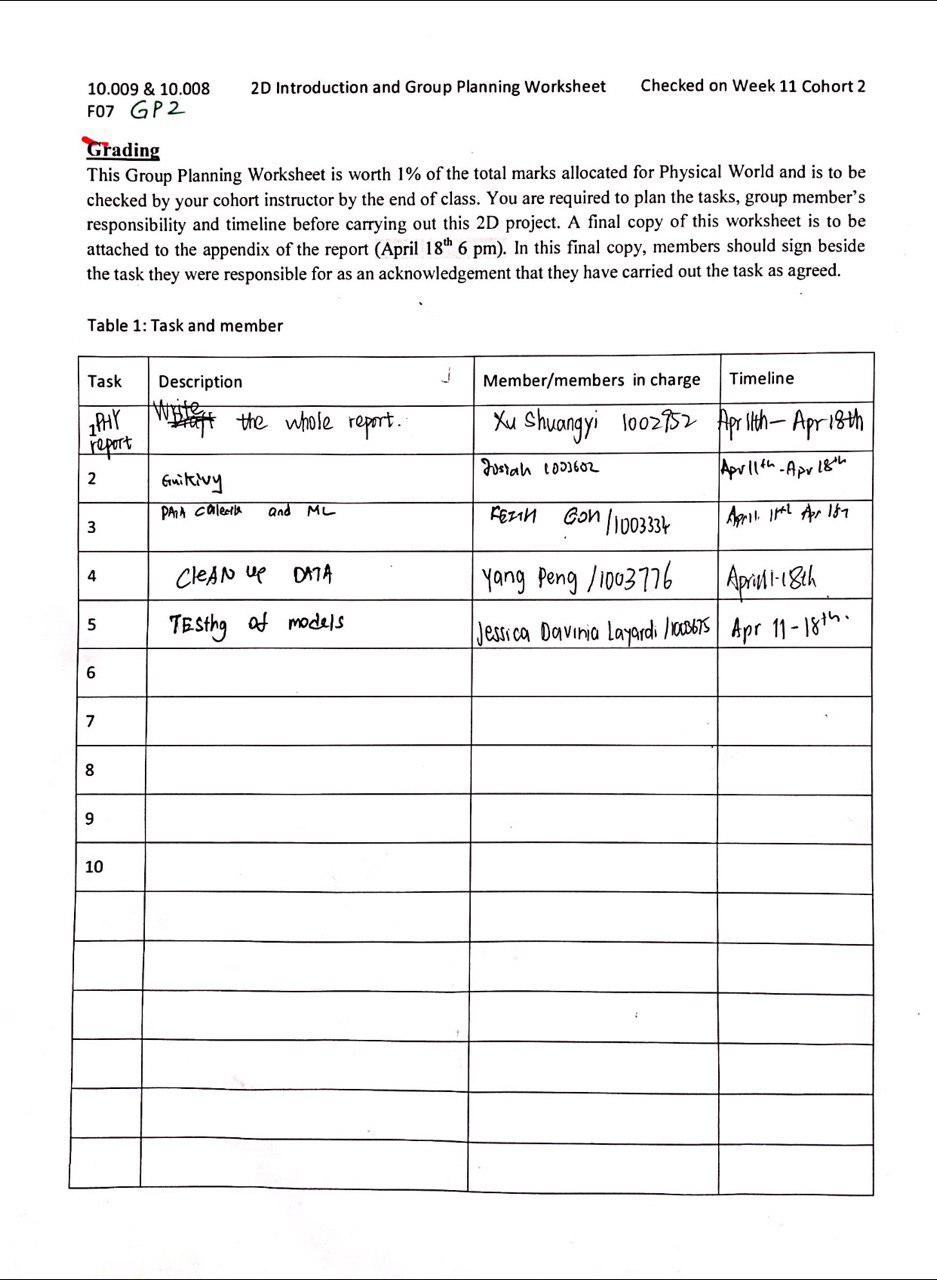 10.009 & 10.008 2D Introduction and Group Planning Worksheet Checked on Week 11 Cohort 2
F07 GP2
Grading
This Group Planning Worksheet is worth 1% of the total marks allocated for Physical World and is to be
checked by your cohort instructor by the end of class. You are required to plan the tasks, group member's
responsibility and timeline before carrying out this 2D project. A final copy of this worksheet is to be
attached to the appendix of the report (April 18th 6 pm). In this final copy, members should sign beside
the task they were responsible for as an acknowledgement that they have carried out the task as agreed.
Table 1: Task and member
Task Description Member/members in charge Timeline
1 PHY report Write the whole report. Xu Shuangyi 1002952 Apr 11th - Apr 18th
2 Josiah 1003602 Apr 11th - Apr 18th
3 and ML /1003334 April 11th Apr
4 CleAN up DATA Yang Peng /1003776 April 11-18th
5 TESthg of models Jessica Davinia Layardi /1003675 Apr 11-18th.
6
7
8
9
10